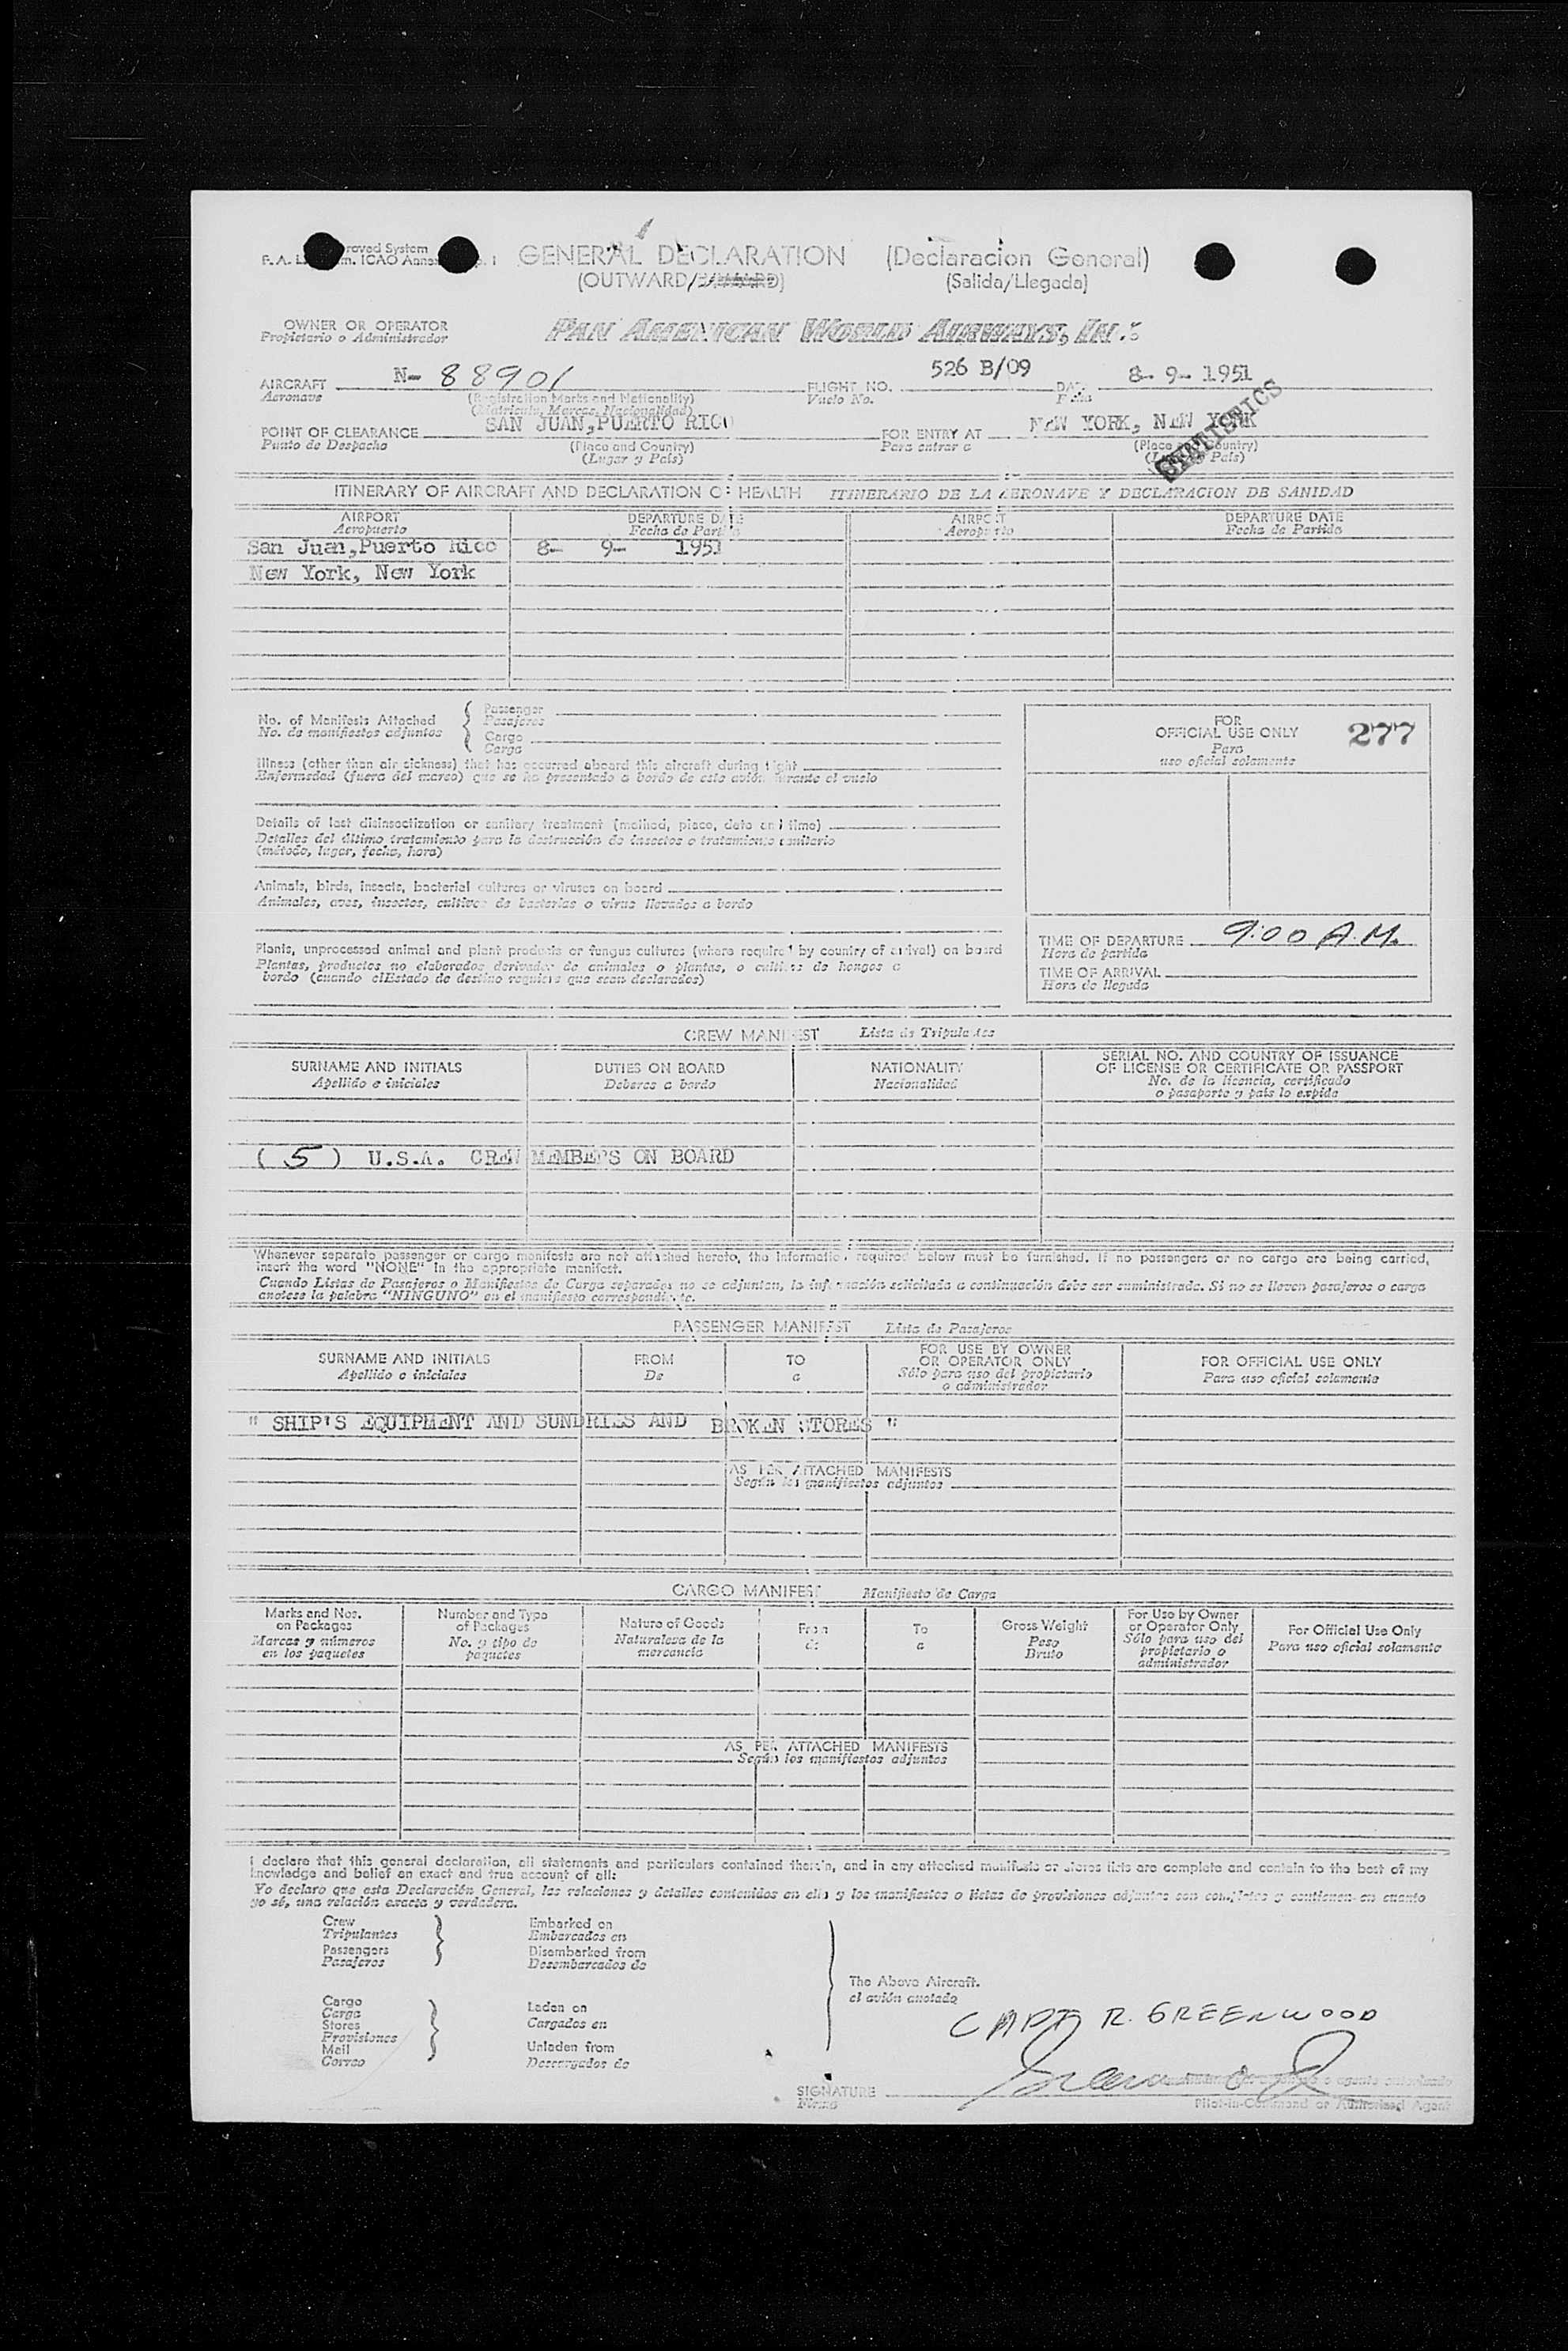 roved System
GENERAL DECLARATION (Declaracion General)
(OUTWARD/ (Salida/Llegada)
OWNER OR OPERATOR PAN AMERICAN WORLD AIRWAYS, IN
Propietario o Administrador
AIRCRAFT N- 88901 FLIGHT NO. 526 B/09 8- 9- 1951
Aeronave (Registration Marks and Nationality) Vuelo No.
(Matricula, Marcas, Nacionalidad)
STATISTICS
POINT OF CLEARANCE SAN JUAN, PUERTO RICO FOR ENTRY AT NEW YORK, NEW YORK
Punto de Despacho (Place and Country) Para entrar a (Place and Country)
(Lugar y Pais) Pais)
ITINERARY OF AIRCRAFT AND DECLARATION OF HEALTH ITINERARIO DE LA AERONAVE Y DECLARACION DE SANIDAD
AIRPORT DEPARTURE DATE AIRPORT DEPARTURE DATE
Aeropuerto Fecha de Partida Aeropuerto Fecha de Partida
San Juan, Puerto Rico 8- 9- 1951
New York, New York
No. of Manifests Attached { Passenger
No. de manifiestos adjuntos Pasajeros
Cargo
Carga
FOR
OFFICIAL USE ONLY 277
Para
uso oficial solamente
Illness (other than air sickness) that has occurred aboard this aircraft during flight
Enfermedad (fuera del mareo) que se ha presentado a bordo de este avión durante el vuelo
Details of last disinsectization or sanitary treatment (method, place, date and time)
Detalles del último tratamiento para la destrucción de insectos o tratamiento sanitario
(método, lugar, fecha, hora)
Animals, birds, insects, bacterial cultures or viruses on board
Animales, aves, insectos, cultivos de bacterias o virus llevados a bordo
Plants, unprocessed animal and plant products or fungus cultures (where required by country of arrival) on board
Plantas, productos no elaborados derivados de animales o plantas, o cultivos de hongos a
bordo (cuando el Estado de destino requiera que sean declarados)
TIME OF DEPARTURE 9:00 A.M.
Hora de partida
TIME OF ARRIVAL
Hora de llegada
CREW MANIFEST Lista de Tripulantes
SURNAME AND INITIALS DUTIES ON BOARD NATIONALITY SERIAL NO. AND COUNTRY OF ISSUANCE
OF LICENSE OR CERTIFICATE OR PASSPORT
Apellido e iniciales Deberes a bordo Nacionalidad No. de la licencia, certificado
o pasaporte y país lo expide
( 5 ) U.S.A. CREW MEMBERS ON BOARD
Whenever separate passenger or cargo manifests are not attached hereto, the information required below must be furnished. If no passengers or no cargo are being carried,
insert the word "NONE" in the appropriate manifest.
Cuando Listas de Pasajeros o Manifiestos de Carga separados no se adjunten, la información solicitada a continuación debe ser suministrada. Si no se llevan pasajeros o carga
anótese la palabra "NINGUNO" en el manifiesto correspondiente.
PASSENGER MANIFEST Lista de Pasajeros
SURNAME AND INITIALS FROM TO FOR USE BY OWNER
OR OPERATOR ONLY FOR OFFICIAL USE ONLY
Apellido e iniciales De a Sólo para uso del propietario
o administrador Para uso oficial solamente
" SHIP'S EQUIPMENT AND SUNDRIES AND BROKEN STORES "
AS PER ATTACHED MANIFESTS
Según los manifiestos adjuntos
CARGO MANIFEST Manifiesto de Carga
Marks and Nos.
on Packages
Marcas y números
en los paquetes
Number and Type
of Packages
No. y tipo de
paquetes
Nature of Goods
Naturaleza de la
mercancía
From
de
To
a
Gross Weight
Peso
Bruto
For Use by Owner
or Operator Only
Sólo para uso del
propietario o
administrador
For Official Use Only
Para uso oficial solamente
AS PER ATTACHED MANIFESTS
Según los manifiestos adjuntos
I declare that this general declaration, all statements and particulars contained therein, and in any attached manifests or stores lists are complete and contain to the best of my
knowledge and belief an exact and true account of all:
Yo declaro que esta Declaración General, las relaciones y detalles contenidos en ella y los manifiestos o listas de provisiones adjuntas son completos y contienen en cuanto
yo sé, una relación exacta y verdadera.
Crew Embarked on
Tripulantes Embarcados en
Passengers Disembarked from
Pasajeros Desembarcados de
The Above Aircraft.
el avión anotado
Cargo Laden on
Carga Cargados en
Stores
Provisiones
Mail Unladen from
Correo Descargados de
CAPT R. GREENWOOD
SIGNATURE
Firma
Pilot-in-Command or Authorized Agent